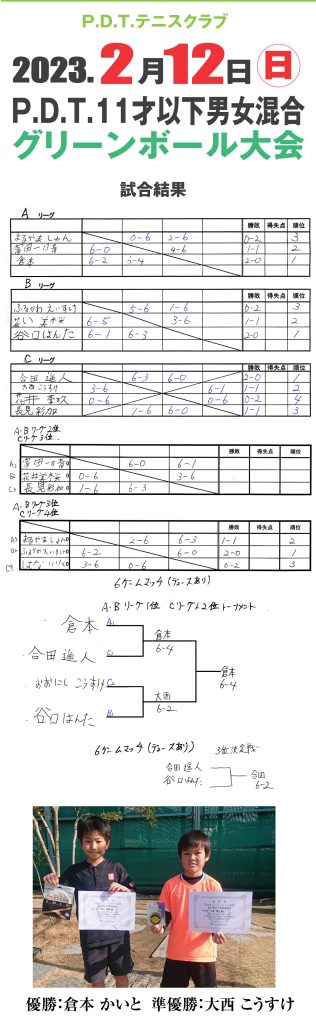 P.D.T.テニスクラブ
2023.2月12日 日
P.D.T.11才以下男女混合
グリーンボール大会
試合結果
A リーグ
勝敗 得失点 順位
まるやましゅん 0-6 2-6 0-2 3
6-0 4-6 1-1 2
倉本 6-2 6-4 2-0 1
B リーグ
勝敗 得失点 順位
ふるかわえいすけ 5-6 1-6 0-2 3
6-5 3-6 1-1 2
谷口はんた 6-1 6-3 2-0 1
C リーグ
勝敗 得失点 順位
合田 遥人 6-3 6-0 2-0 1
大西こうすけ 3-6 6-1 1-1 2
花井 0-6 0-6 0-2 4
長見彩加 1-6 6-0 1-1 3
A.Bリーグ2位
Cリーグ3位
勝敗 得失点 順位
A2 6-0 6-1
B2 花井 0-6 3-6
C3 長見彩加 1-6 6-3
A.Bリーグ3位
Cリーグ4位
勝敗 得失点 順位
A3 まるやましゅん 2-6 6-3 1-1 2
B3 ふるかわえいすけ 6-2 6-0 2-0 1
C4 3-6 0-6 0-2 3
6ゲームマッチ(デュースあり)
A.Bリーグ1位 Cリーグ1.2位トーナメント
倉本 A1
倉本
6-4
合田遥人 C1
倉本
6-4
おおにし こうすけ C2
大西
6-2
谷口はんた B1
6ゲームマッチ(デュースあり) 3位決定戦
合田遥人
谷口はんた
合田
6-2
優勝:倉本 かいと 準優勝:大西 こうすけ